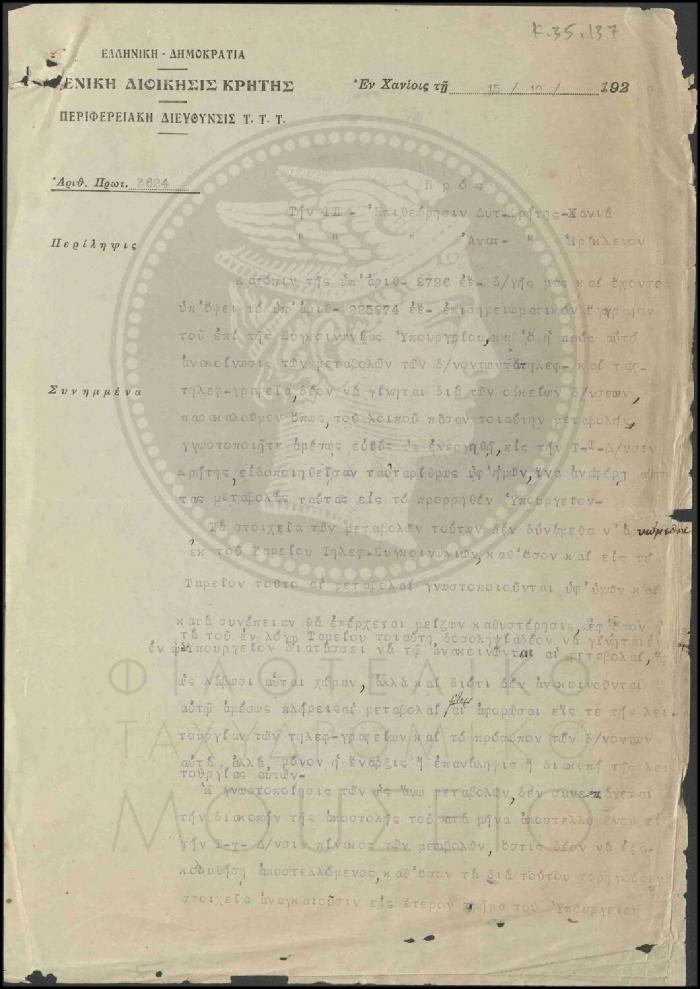 Κ.35.137
ΕΛΛΗΝΙΚΗ - ΔΗΜΟΚΡΑΤΙΑ
ΕΝΙΚΗ ΔΙΟΙΚΗΣΙΣ ΚΡΗΤΗΣ
Ἐν Χανίοις τῇ 15 / 10 / 192
ΠΕΡΙΦΕΡΕΙΑΚΗ ΔΙΕΥΘΥΝΣΙΣ Τ. Τ. Τ.
Ἀριθ. Πρωτ. 3624
Πρός
Τὴν ΤΤ - Ἐπιθεώρησιν Δυτ-Κρήτης-Χανιά
" " " Ἀνατ- " Ἡράκλειον
Περίληψις
Κατόπιν τῆς ὑπ' ἀριθ- 2726 ἐ.ἔ- δ/γῆς μας καὶ ἔχοντες
ὑπ' ὄψει τὸ ὑπ' ἀριθ- 225674 ἐ.ἔ- ἐπισημειωματικὸν ἔγγραφον
τοῦ ἐπὶ τῆς Συγκοινωνίας Ὑπουργείου, καθ' ὃ ἡ πρὸς αὐτὸ
ἀνακοίνωσις τῶν μεταβολῶν τῶν δ/νοντων τὰ τηλεφ- καὶ ταχ-
Συνημμένα
τηλεφ-γραφεῖα, δέον νὰ γίνηται διὰ τῶν οἰκείων δ/νσεων,
παρακαλοῦμεν ὅπως, τοῦ λοιποῦ πᾶσαν τοιαύτην μεταβολὴν,
γνωστοποιῆτε ἀμέσως εὐθὺς ὡς ἐνεργηθῇ, εἰς τὴν Τ-Τ-Δ/νσιν
Κρήτης, εἰδοποιηθεῖσαν ταὐταρίθμως ὑφ' ἡμῶν, ἵνα ἀναφέρῃ αὕτη
τὰς μεταβολὰς ταύτας εἰς τὸ προρρηθὲν Ὑπουργεῖον-
Τὰ στοιχεῖα τῶν μεταβολῶν τούτων δὲν δυνάμεθα ν'
ἐκ τοῦ Ταμείου Τηλεφ-Συγκοινωνιῶν, καθ' ὅσον καὶ εἰς τὸ
Ταμεῖον τοῦτο αἱ μεταβολαὶ γνωστοποιοῦνται ὑφ' ὑμῶν καὶ
κατὰ συνέπειαν θὰ ἐπέρχεται μείζων καθυστέρησις, ἐφ' ὅσον
τὰ τοῦ ἐν λόγῳ Ταμείου τοιαύτη δοσοληψία δέον νὰ γίνηται
ἐν ᾧ Ὑπουργεῖον διατάσσει νὰ τῷ ἀνακοινῶνται αἱ μεταβολαὶ,
ὡς λάβωσι αὗται χώραν, ἀλλὰ καὶ διότι δὲν ἀνακοινοῦνται
αὐτῷ ἀμέσως πλήρεις αἱ μεταβολαὶ αἱ ἀφορῶσαι εἴς τε τὴν λει-
τουργίαν τῶν τηλεφ-γραφείων καὶ τὸ πρόσωπον τῶν δ/νοντων
αὐτά, ἀλλὰ μόνον ἡ ἔναρξις ἢ ἐπανάληψις ἢ διακοπὴ τῆς λει
τουργίας αὐτῶν-
Ἡ γνωστοποίησις τῶν ὡς ἄνω μεταβολῶν, δὲν συνεπάγεται
τὴν διακοπὴν τῆς ἀποστολῆς τοῦ κατὰ μῆνα ἀποστελλομένου εἰ
τὴν Τ-Τ- Δ/νσιν πίνακος τῶν μεταβολῶν, ὅστις δέον νὰ ἐξα-
κολουθήσῃ ἀποστελλόμενος, καθ' ὅσον τὰ διὰ τούτου χορηγούμεν
στοιχεῖα ἀναγκαιοῦσιν εἰς ἕτερον τμῆμα τοῦ Ὑπουργείου
ΦΙΛΟΤΕΛΙΚΟ
ΤΑΧΥΔΡΟΜΙΚΟ
ΜΟΥΣΕΙΟ